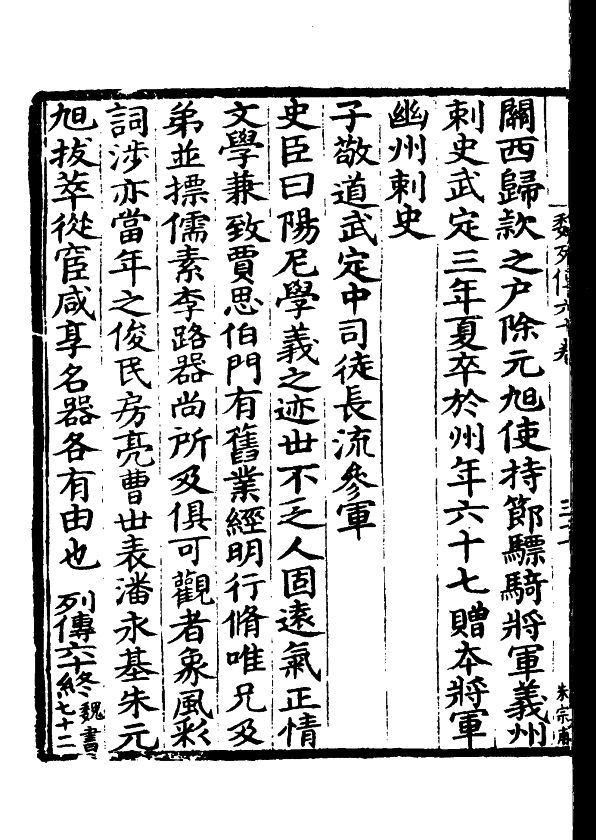 魏列傳六十卷
關西歸款之户除元旭使持節驃騎將軍義州
刺史武定三年夏卒於州年六十七贈夲將軍
幽州刺史
子敬道武定中司徒長流參軍
史臣曰陽尼學義之迹世不乏人固遠氣正情
文學兼致賈思伯門有舊業經明行脩唯兄及
弟並摽儒素李路器尚所及俱可觀者象風彩
詞涉亦當年之俊民房亮曹世表潘永基朱元
旭拔萃從宦咸享名器各有由也 列傳六十終 魏書七十二